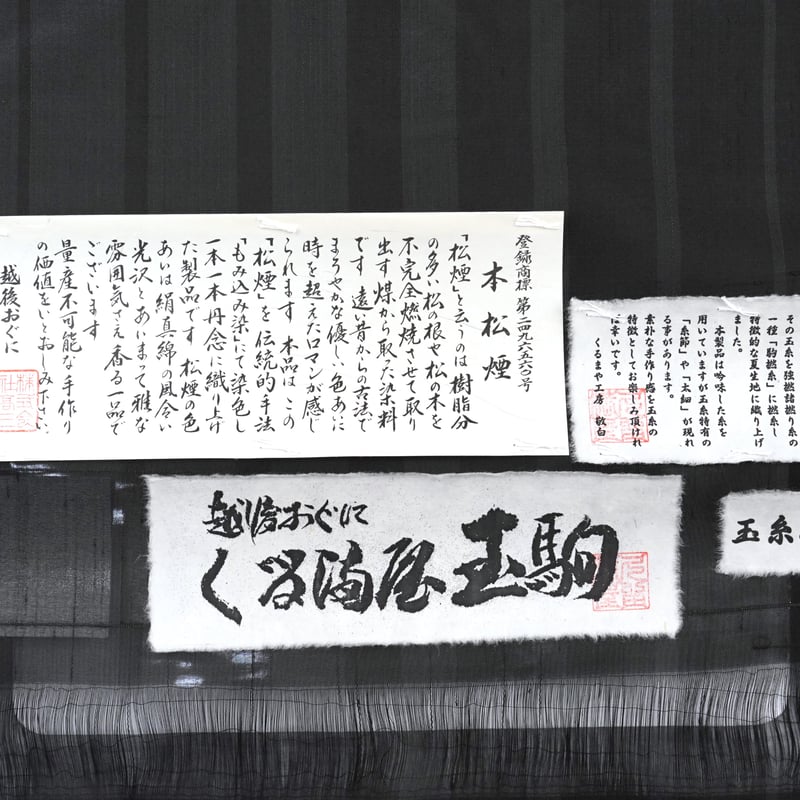 登録商標 第二四九六五六〇号
本松煙
「松煙」と云うのは 樹脂分
の多い松の根や松の木を
不完全燃焼させて取り
出す煤から取った染料
です 遠い昔からの古法で
まろやかな優しい色あいに
時を超えたロマンが感じ
られます 本品は この
「松煙」を伝統的手法
「もみ込み染」にて染色し
一本一本丹念に織り上げ
た製品です 松煙の色
あいは絹真綿の風合い
光沢とあいまって雅な
雰囲気さえ香る一品で
ございます
量産不可能な手作り
の価値をいとおしみ下さい
越後おぐに
その玉糸を強撚諸撚り糸の
一種「駒撚糸」に撚糸し
特徴的な夏生地に織り上げ
ました。
本製品は吟味した糸を
用いていますが玉糸特有の
「糸節」や「太細」が現れ
る事があります。
素朴な手作り感を玉糸の
特徴としてお楽しみ頂ければ
幸いです。
くるまや工房 敬白
越後おぐに
くるま屋玉駒
玉糸